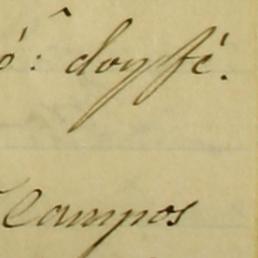 ó: doy fé.
Campos